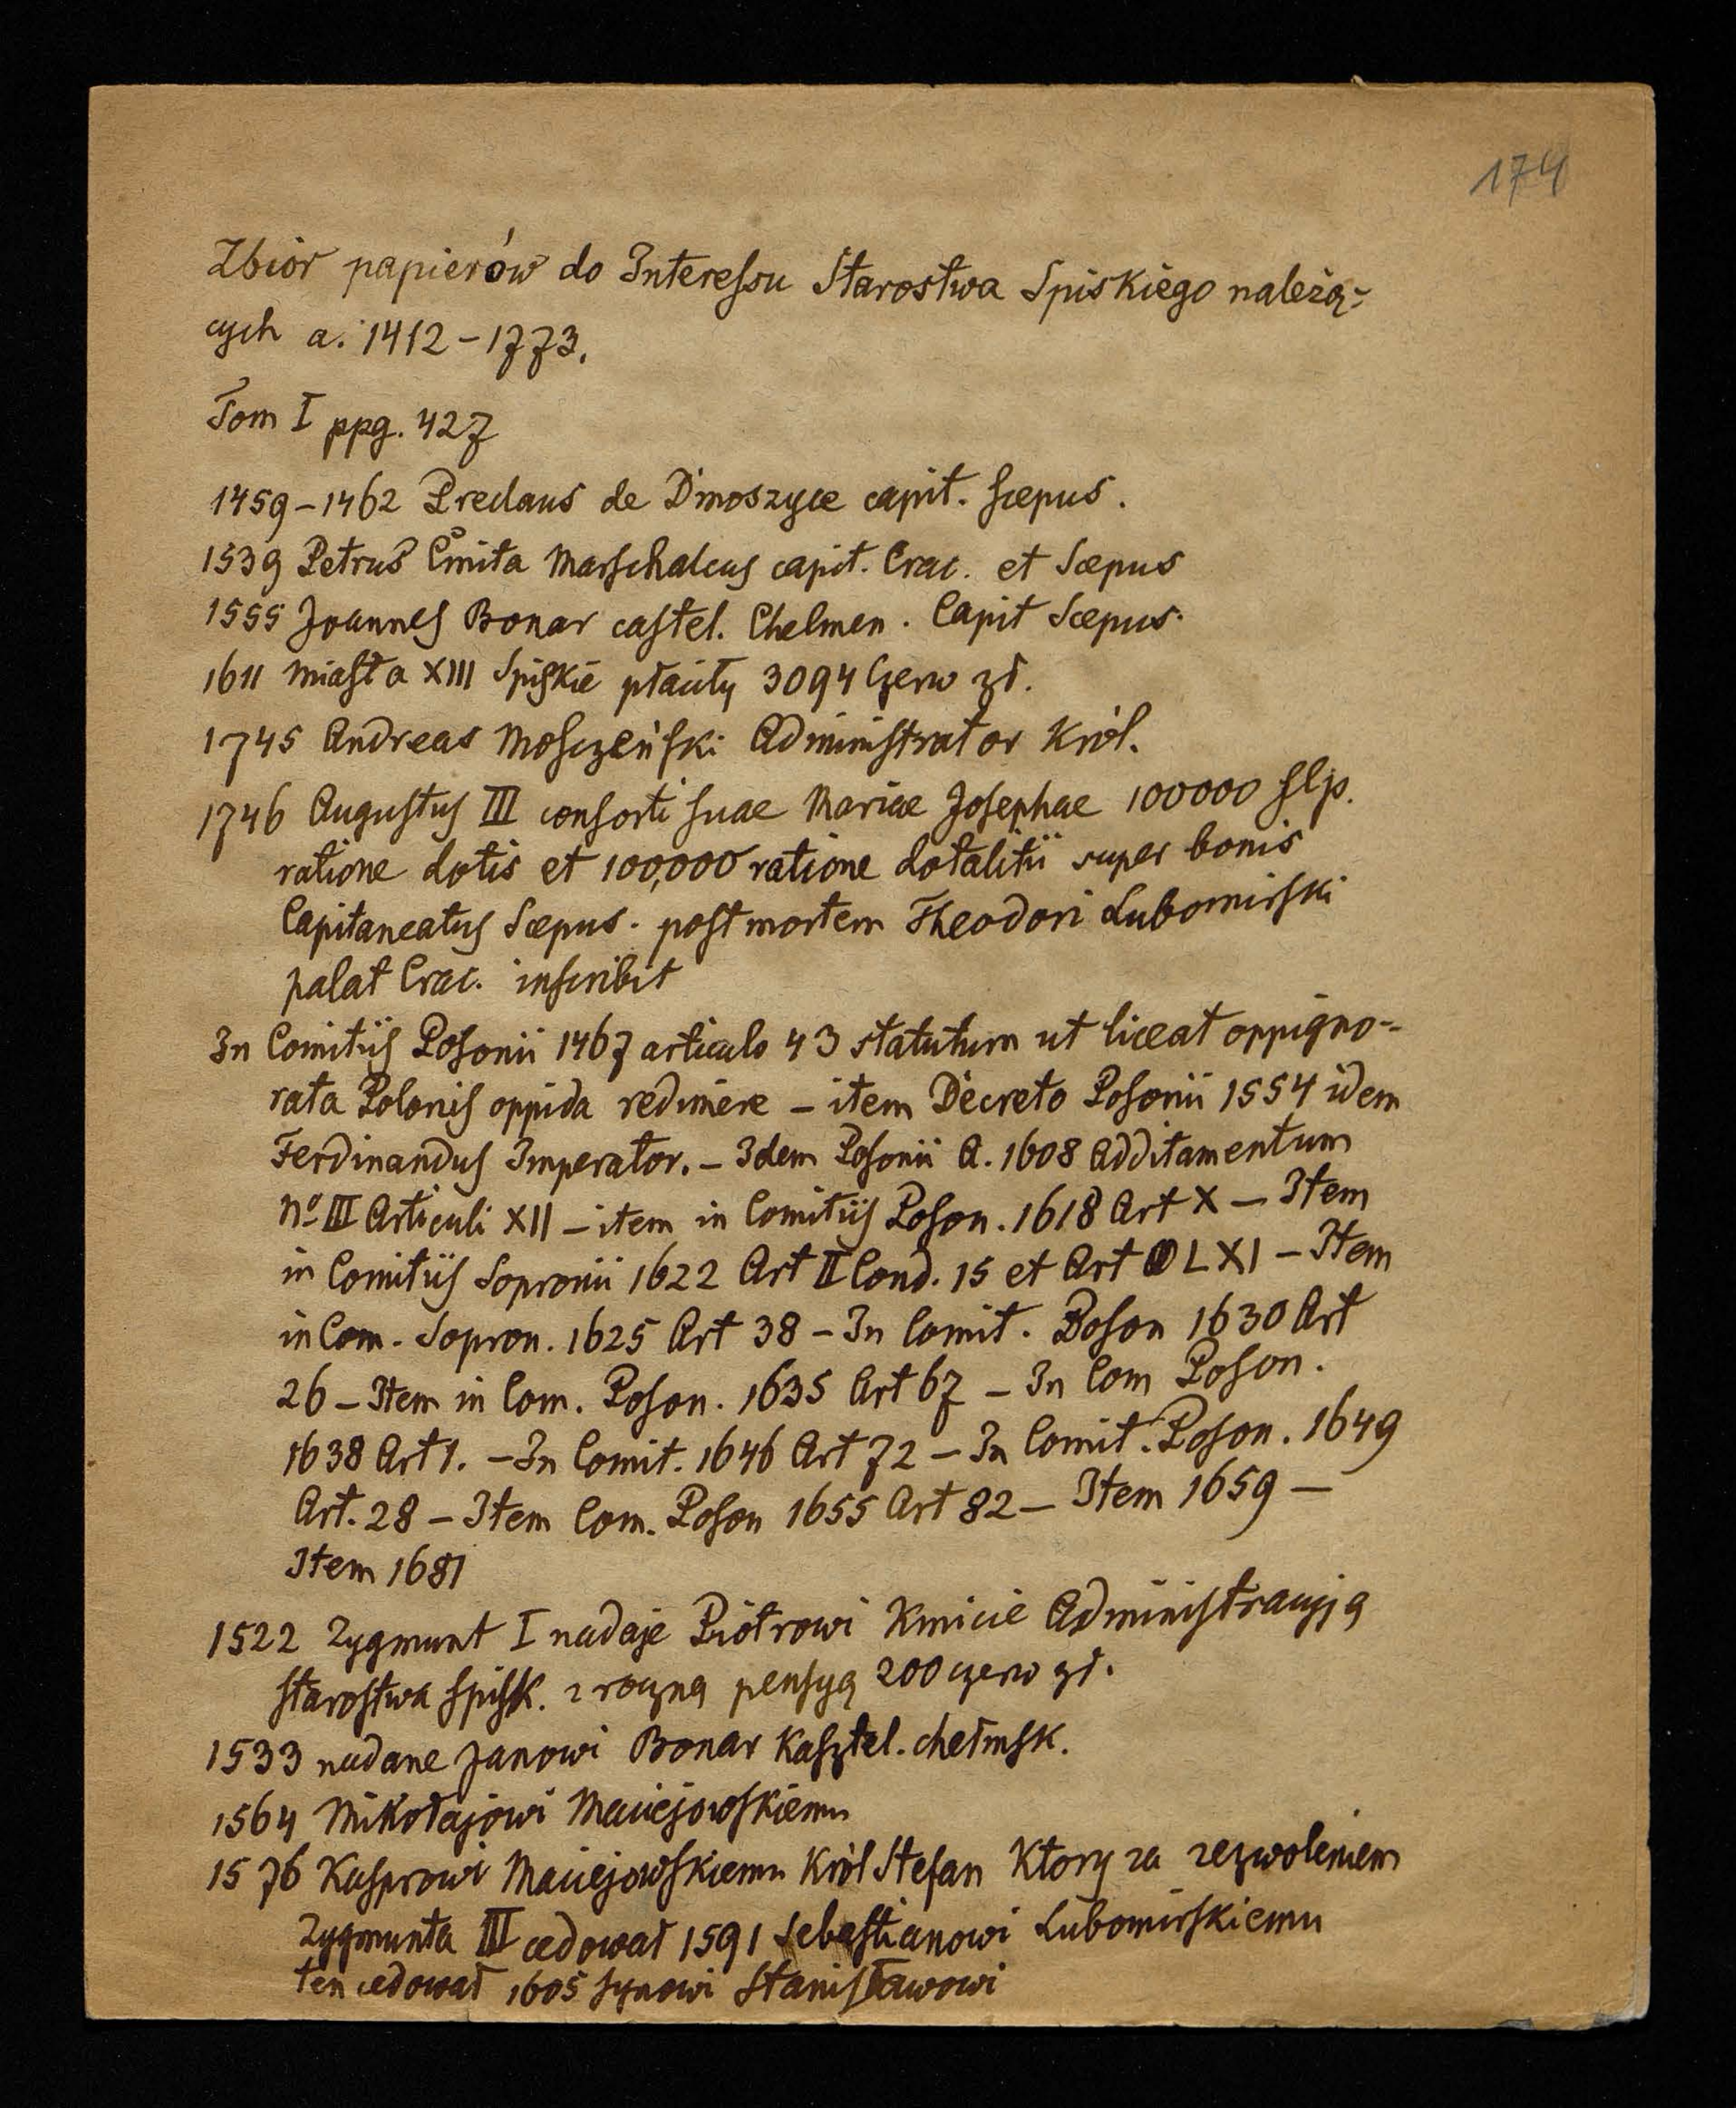 174
Zbiór papierów do Interessu Starostwa Spiskiego należą=
cych a. 1412-1773.
Tom I ppg. 427
1459-1462 Preclaus de Dmoszyce capit. scepus.
1539 Petrus Cmita Marschalcus capit. Crac. et Scepus
1555 Joannes Bonar castel. Chelmen. Capit Scepus.
1611 miasta XIII Spiskie płaciły 3094 Czerw zł.
1745 Andreas Mosczeński Administrator Król.
1746 Augustus III consorti suae Mariae Josephae 100000 flp.
ratione dotis et 100,000 ratione dotalitii super bonis
Capitaneatus Scepus. post mortem Theodori Lubomirski
palat Crac. inscribit
In Comitiis Posonii 1467 articulo 43 statutum ut liceat oppigno-
rata Polonis oppida redimere - item Decreto Posonii 1554 idem
Ferdinandus Imperator. - Idem Posonii A. 1608 Additamentum
No III Articuli XII - item in Comitiis Poson. 1618 Art X - Item
in Comitiis Sopronii 1622 Art II Cond. 15 et Art LXI - Item
in Com. Sopron. 1625 Art 38 - In Comit. Poson 1630 Art
26 - Item in Com. Poson. 1635 Art 67 - In Com Poson.
1638 Art 1. - In Comit. 1646 Art 72 - In Comit. Poson. 1649
Art. 28 - Item Com. Poson 1655 Art 82 - Item 1659 -
Item 1681
1522 Zygmunt I nadaje Piotrowi Kmicie Administracyją
starostwa spisk. z roczną pensyą 200 czerw zł.
1533 nadane Janowi Bonar Kasztel. chełmsk.
1564 Mikołajowi Maciejowskiemu
1576 Kasprowi Maciejowskiemu Król Stefan Ktory za zezwoleniem
Zygmunta III cedował 1591 Sebastianowi Lubomirskiemu
ten cedował 1605 synowi Stanisławowi